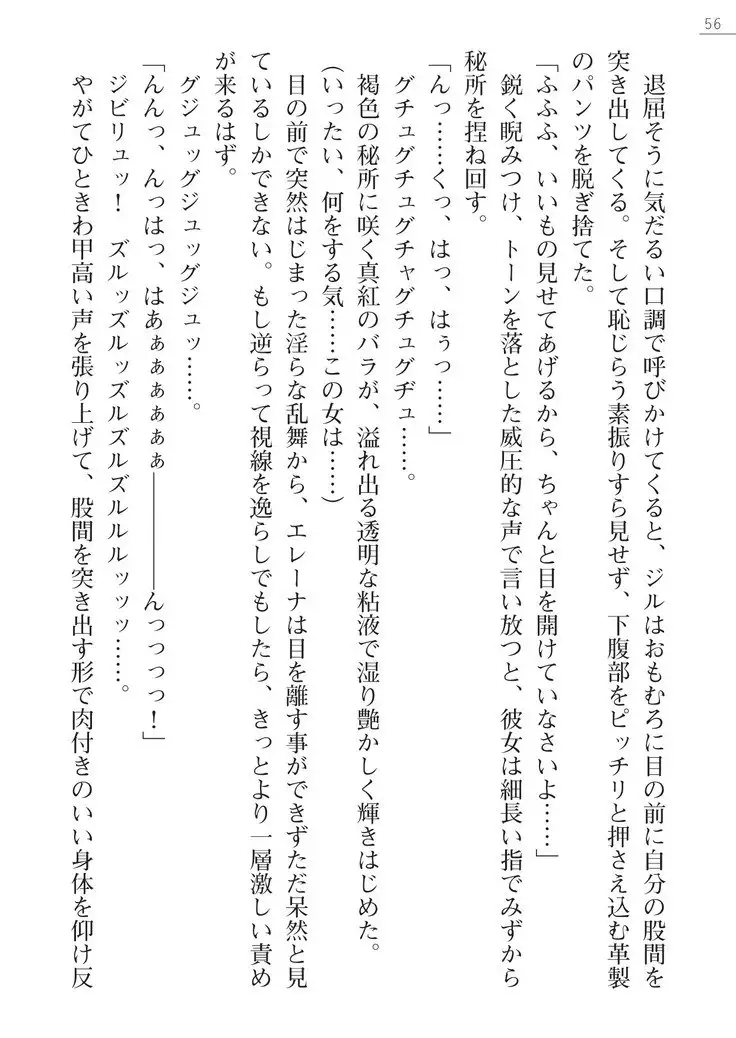 56
退屈そうに気だるい口調で呼びかけてくると、ジルはおもむろに目の前に自分の股間を
突き出してくる。そして恥じらう素振りすら見せず、下腹部をピッチリと押さえ込む革製
のパンツを脱ぎ捨てた。
「ふふふ、いいもの見せてあげるから、ちゃんと目を開けていなさいよ……」
鋭く睨みつけ、トーンを落とした威圧的な声で言い放つと、彼女は細長い指でみずから
秘所を捏ね回す。
「んっ……くっ、はっ、はぅっ……」
グチュグチュグチャグチュグヂュ……。
褐色の秘所に咲く真紅のバラが、溢れ出る透明な粘液で湿り艶かしく輝きはじめた。
(いったい、何をする気……この女は……)
目の前で突然はじまった淫らな乱舞から、エレーナは目を離す事ができずただ呆然と見
ているしかできない。もし逆らって視線を逸らしでもしたら、きっとより一層激しい責め
が来るはず。
グジュッグジュッグジュッ……。
「んんっ、んっはっ、はあぁぁぁぁぁぁ――――んっっっっ!」
ジビリュッ! ズルッズルッズルズルズルルルッッッ……。
やがてひときわ甲高い声を張り上げて、股間を突き出す形で肉付きのいい身体を仰け反